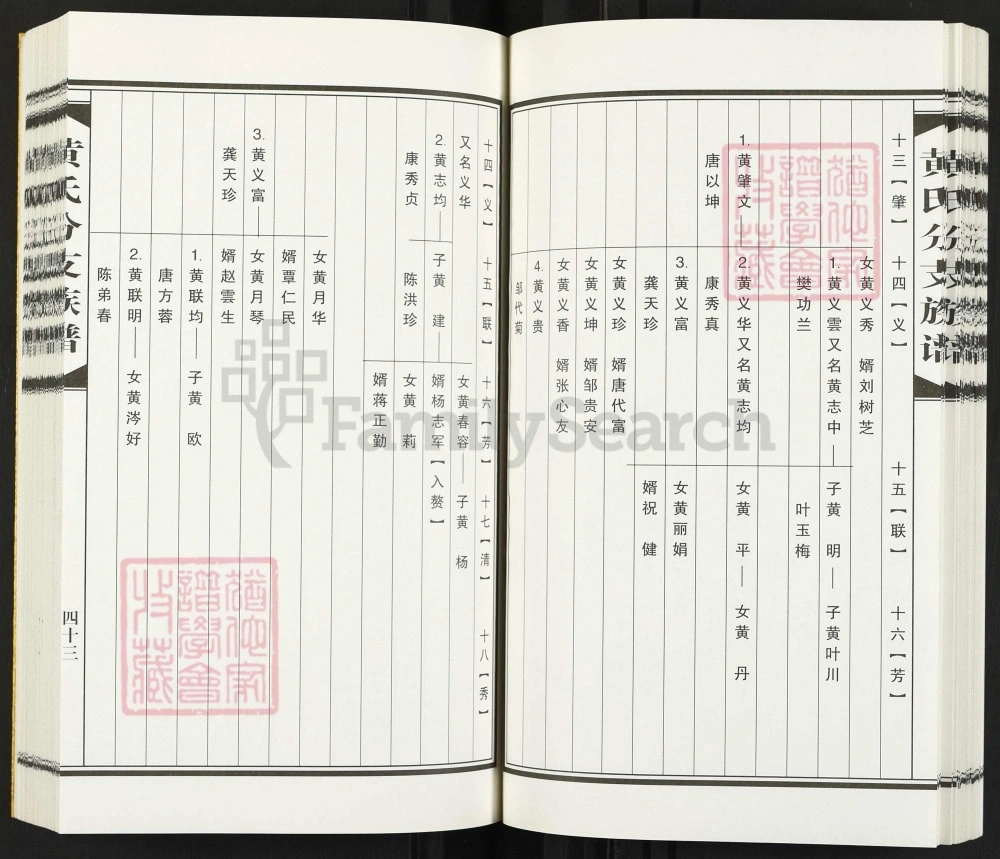 黄氏分支族谱
十三【肇】 十四【义】 十五【联】 十六【芳】
女黄义秀 婿刘树芝
1.黄义雲又名黄志中——子黄 明——子黄叶川
樊功兰 叶玉梅
1.黄肇文—2.黄义华又名黄志均 女黄 平——女黄 丹
唐以坤 康秀真
3.黄义富 女黄丽娟
龚天珍 婿祝 健
女黄义珍 婿唐代富
女黄义坤 婿邹贵安
女黄义香 婿张心友
4.黄义贵
邹代菊
十四【义】 十五【联】 十六【芳】 十七【清】 十八【秀】
又名义华 女黄春容——子黄 杨
2.黄志均——子黄 建——婿杨志军【入赘】
康秀贞 陈洪珍 女黄 莉
婿蒋正勤
女黄月华
婿覃仁民
3.黄义富——女黄月琴
龚天珍 婿赵雲生
1.黄联均——子黄 欧
唐方蓉
2.黄联明——女黄涔好
陈弟春
黄氏分支族谱
四十三
猶他家譜學會收藏
猶他家譜學會收藏
FamilySearch